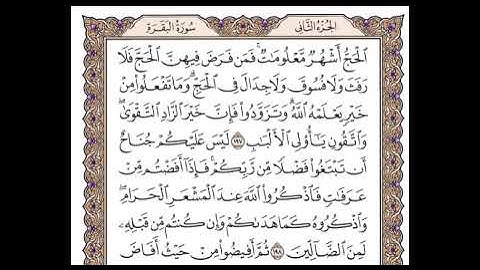 الجزء الثاني سورة البقرة
ٱلۡحَجُّ أَشۡهُرٞ مَّعۡلُومَٰتٞۚ فَمَن فَرَضَ فِيهِنَّ ٱلۡحَجَّ فَلَا
رَفَثَ وَلَا فُسُوقَ وَلَا جِدَالَ فِي ٱلۡحَجِّۗ وَمَا تَفۡعَلُواْ مِنۡ
خَيۡرٖ يَعۡلَمۡهُ ٱللَّهُۗ وَتَزَوَّدُواْ فَإِنَّ خَيۡرَ ٱلزَّادِ ٱلتَّقۡوَىٰۖ
وَٱتَّقُونِ يَٰٓأُوْلِي ٱلۡأَلۡبَٰبِ ١٩٧ لَيۡسَ عَلَيۡكُمۡ جُنَاحٌ
أَن تَبۡتَغُواْ فَضۡلٗا مِّن رَّبِّكُمۡۚ فَإِذَآ أَفَضۡتُم مِّنۡ
عَرَفَٰتٖ فَٱذۡكُرُواْ ٱللَّهَ عِندَ ٱلۡمَشۡعَرِ ٱلۡحَرَامِۖ
وَٱذۡكُرُوهُ كَمَا هَدَىٰكُمۡ وَإِن كُنتُم مِّن قَبۡلِهِۦ
لَمِنَ ٱلضَّآلِّينَ ١٩٨ ثُمَّ أَفِيضُواْ مِنۡ حَيۡثُ أَفَاضَ